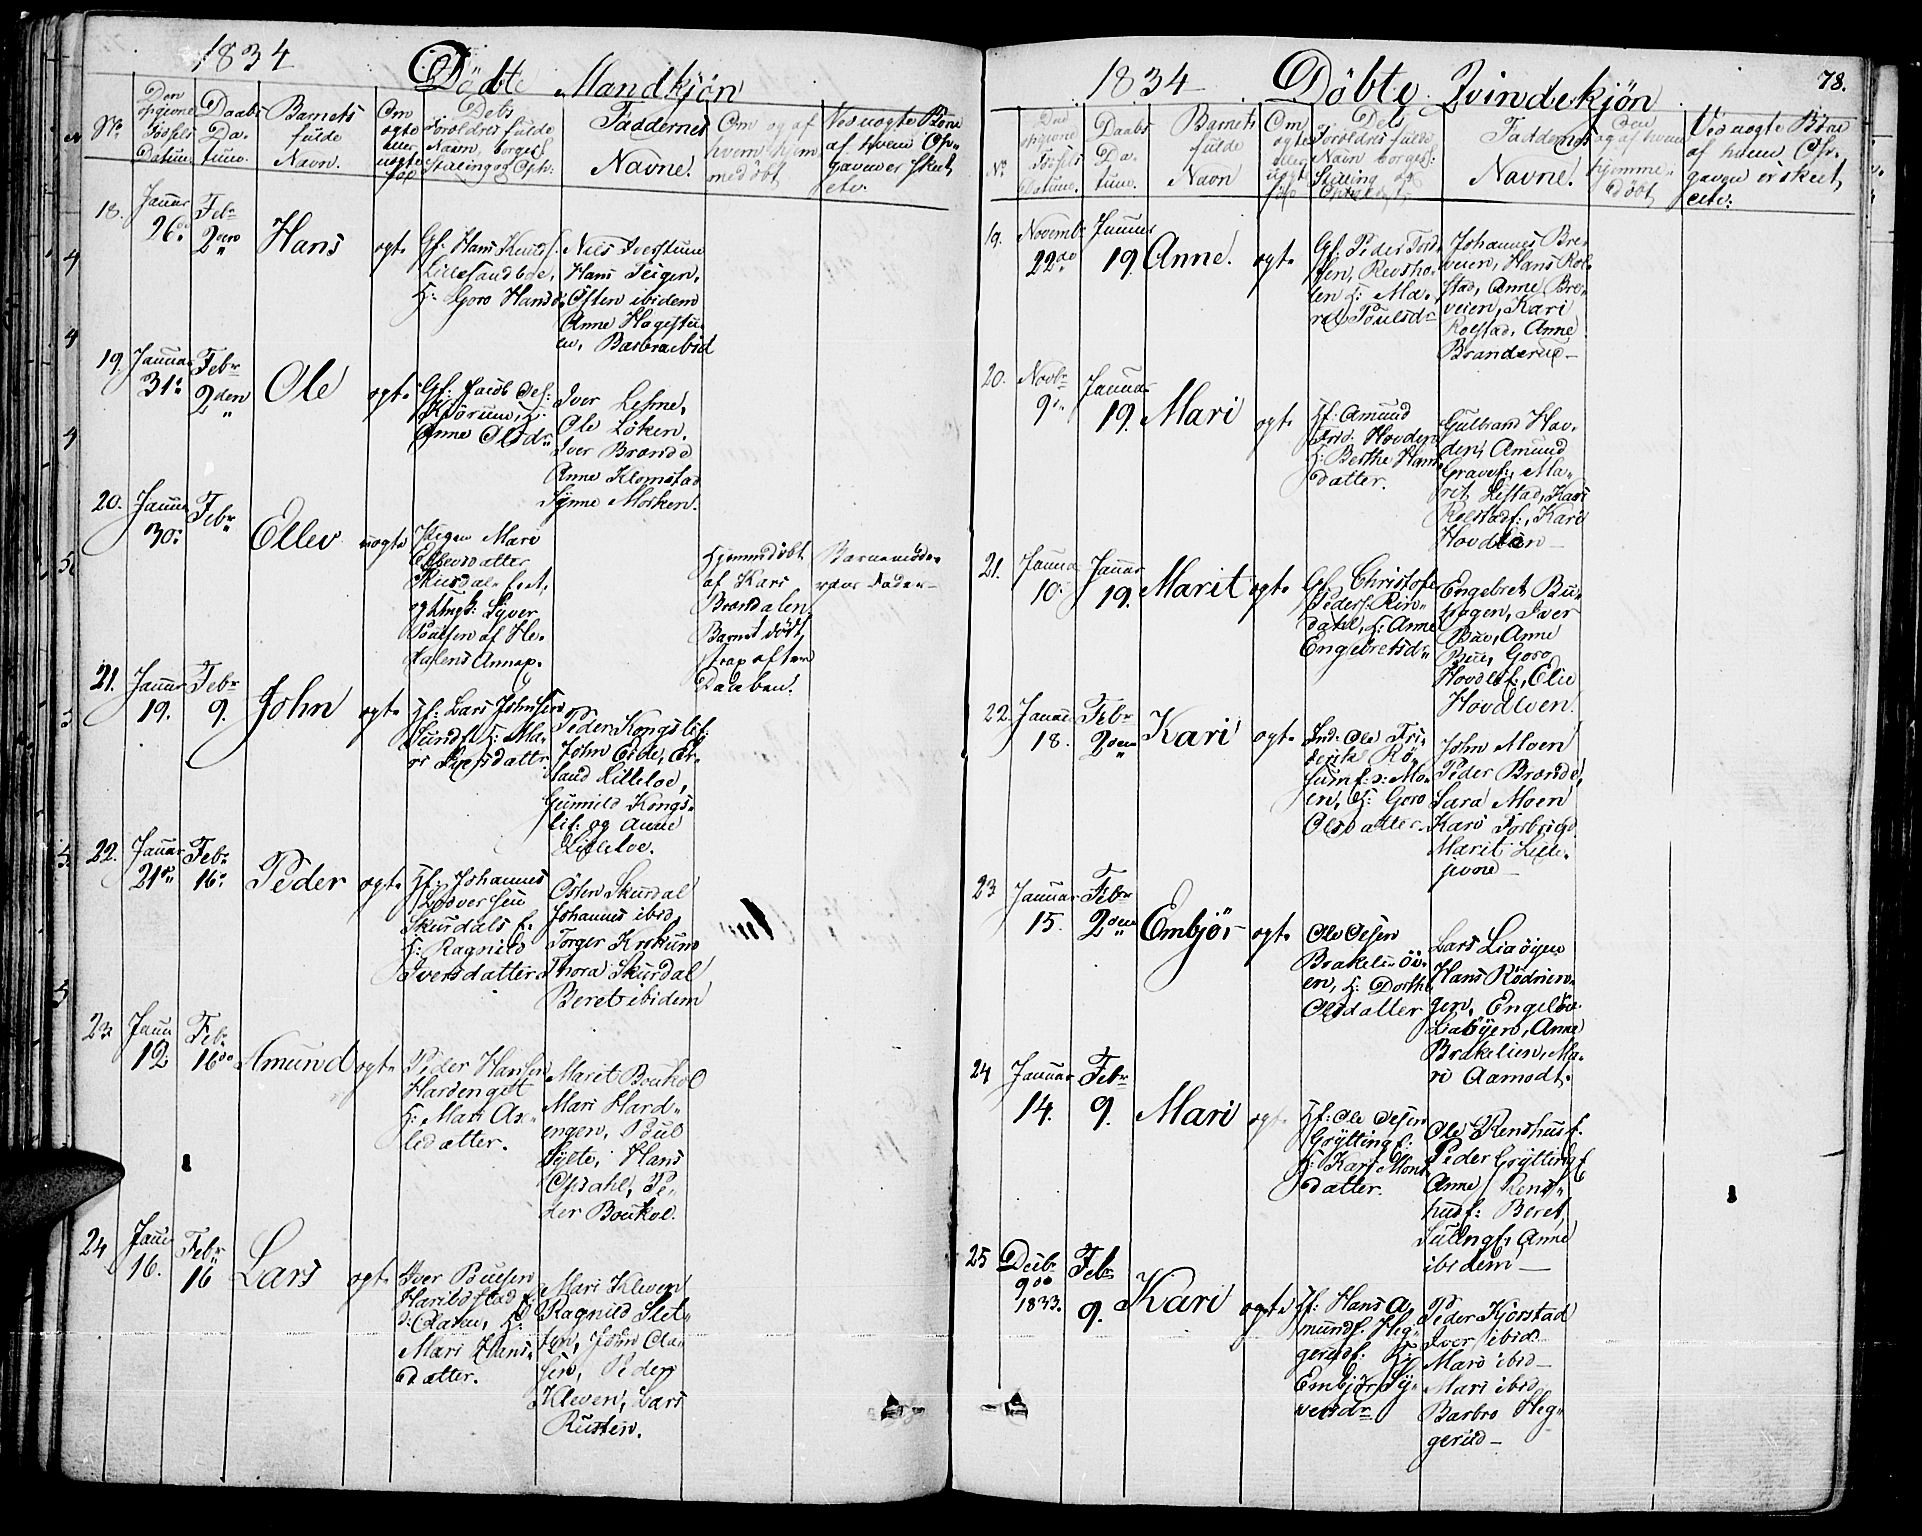 1834
Döbte Mandkjön
No.
Den opgivne Födsels Datum.
Daabs Datum.
Barnets fulde Navn.
Om ægte eller uægte fød
Dets Foreldres fulde Navn, borgerl. Stilling og Oph.
Faddernes Navne.
Om og af hvem hjemmedöbt
Ved uægte Børn af hvem Opgaven er skeet etc.
18. Januar 26de
Febr 2den
Hans
ægte
Gf. Hans Knuds.
Lillesandboe,
K: Goro Hansd.
Nels
Hans Teigen,
Østen ibidem
Anne Hagestuen,
Barbra ibid
19. Januar 31te
Febr 2den
Ole
ægte
Gf. Jacob Oles.
K:
Anne Olsdr
Iver Lehne,
Ole Løken.
Iver Brænde
Anne Klomstad
Synne Morken.
20. Januar 30:
Febr
Ellev
uægte
Pigen Mari
Ellevsdatter
og Ungk: Syver
Poulsen af He-
Hjemmedöbt
af Kari
Brændalen
Barnet död
strax efter
Daaben.
Barnemode-
rens Fader
21. Januar 19.
Febr 9.
John
ægte
Hf: Lars Johnsen
Sundt K: Ma-
ri datter
Peder Kongslif:
John Eide, Er-
land Lilleloe,
Gunnild Kongs-
lif: og Anne
Lilleloe.
22. Januar 21de
Febr 16:
Peder
ægte
Hf: Johannes
Sjoversen
Skurdals E.
K: Ragnild
Iversdatter
Østen Skurdal
Johannes ibid,
Torger Krokum
Thora Skurdal
Beret ibidem
23 Janu 12
Febr 16de
Amund
ægte
Peder Hansen
Hardenget
K: Mari As-
ledatter.
Marit Boukol
Mari Hard-
engen, Poul
Sylte, Hans
Opsahl, Pe-
der Boukol.
24 Janu 16.
Febr 16
Lars
ægte
Iver Poulsen
K:
Mari Hans-
datter.
Mari Kleven
Ragnild Slet-
ten, John Cla-
sen, Peder
Kleven, Lars
Rusten.
1834
Döbte Qvindekjön
78.
No
Den opgivne Födsels Datum.
Daabs Datum.
Barnets fulde Navn
Om ægte eller uægte fød
Dets Foreldres fulde Navn borgerl: Stilling og Opholdst.
Faddernes Navne.
Om og af hvem hjemmedöbt
Ved uægte Børn af hvem Opgaven er skeet, etc.
19. Novembr 22de
Januar 19.
Anne.
ægte
Gf. Peder Tord-
sen,
K: Ma-
rit Poulsdr
Johannes Bre-
veien, Hans Rol-
stad, Anne Bre-
veien, Kari
Rolstad, Anne
Branderud
20. Novbr 9de
Januar 19.
Mari
ægte
Hf: Amund
Hovden
K: Berthe Hans-
datter.
Gulbrand Hov-
den, Amund
Gravef:, Ma-
rit Listad, Kari
Rolstadf:, Kari
Hovdlien
21. Januar 10.
Januar 19.
Marit
ægte
Gf. Christofer
Peders. Rin-
dahl, K: Anne
Engebretsdr
Engebret Bu-
hagen, Iver
Bue, Anne
Bue, Goro
Hovdef:, Elie
Hovdlien.
22. Januar 18.
Febr 2den
Kari
ægte
Ind: Ole Fri-
derik Rö-
sumf: s: Mo-
en, K: Goro
Olsdatter
John Moen
Peder Brænde,
Sara Moen
Kari Torbrigd
Marit Lille-
jvone
23 Januar 15.
Febr 2den
Embjør
ægte
Ole Olsen
Brakeli-Öi-
en, K: Dorthe
Olsdatter
Lars Liaöyen
Hans Rödnien-
gen, Engel
Liaöyen, Anne
Brakelien, Ma-
ri Aamodt.
24 Januar 14.
Febr 9.
Mari
ægte
Hf: Ole Olsen
Gryttingf:
K: Kari Mons-
datter.
Ole Rendhusf.
Peder Grytting f
Anne Rend-
husf: Beret
Anne
ibidem
25 Decbr 9de 1833.
Febr 9.
Kari
ægte
Hf: Hans A-
mundf. Heg-
gerudf: K:
Embjör Sy-
versdr
Peder Kjorstad
Iver ibid.
Mari ibid
Mari ibid,
Barbro Heg-
gerud